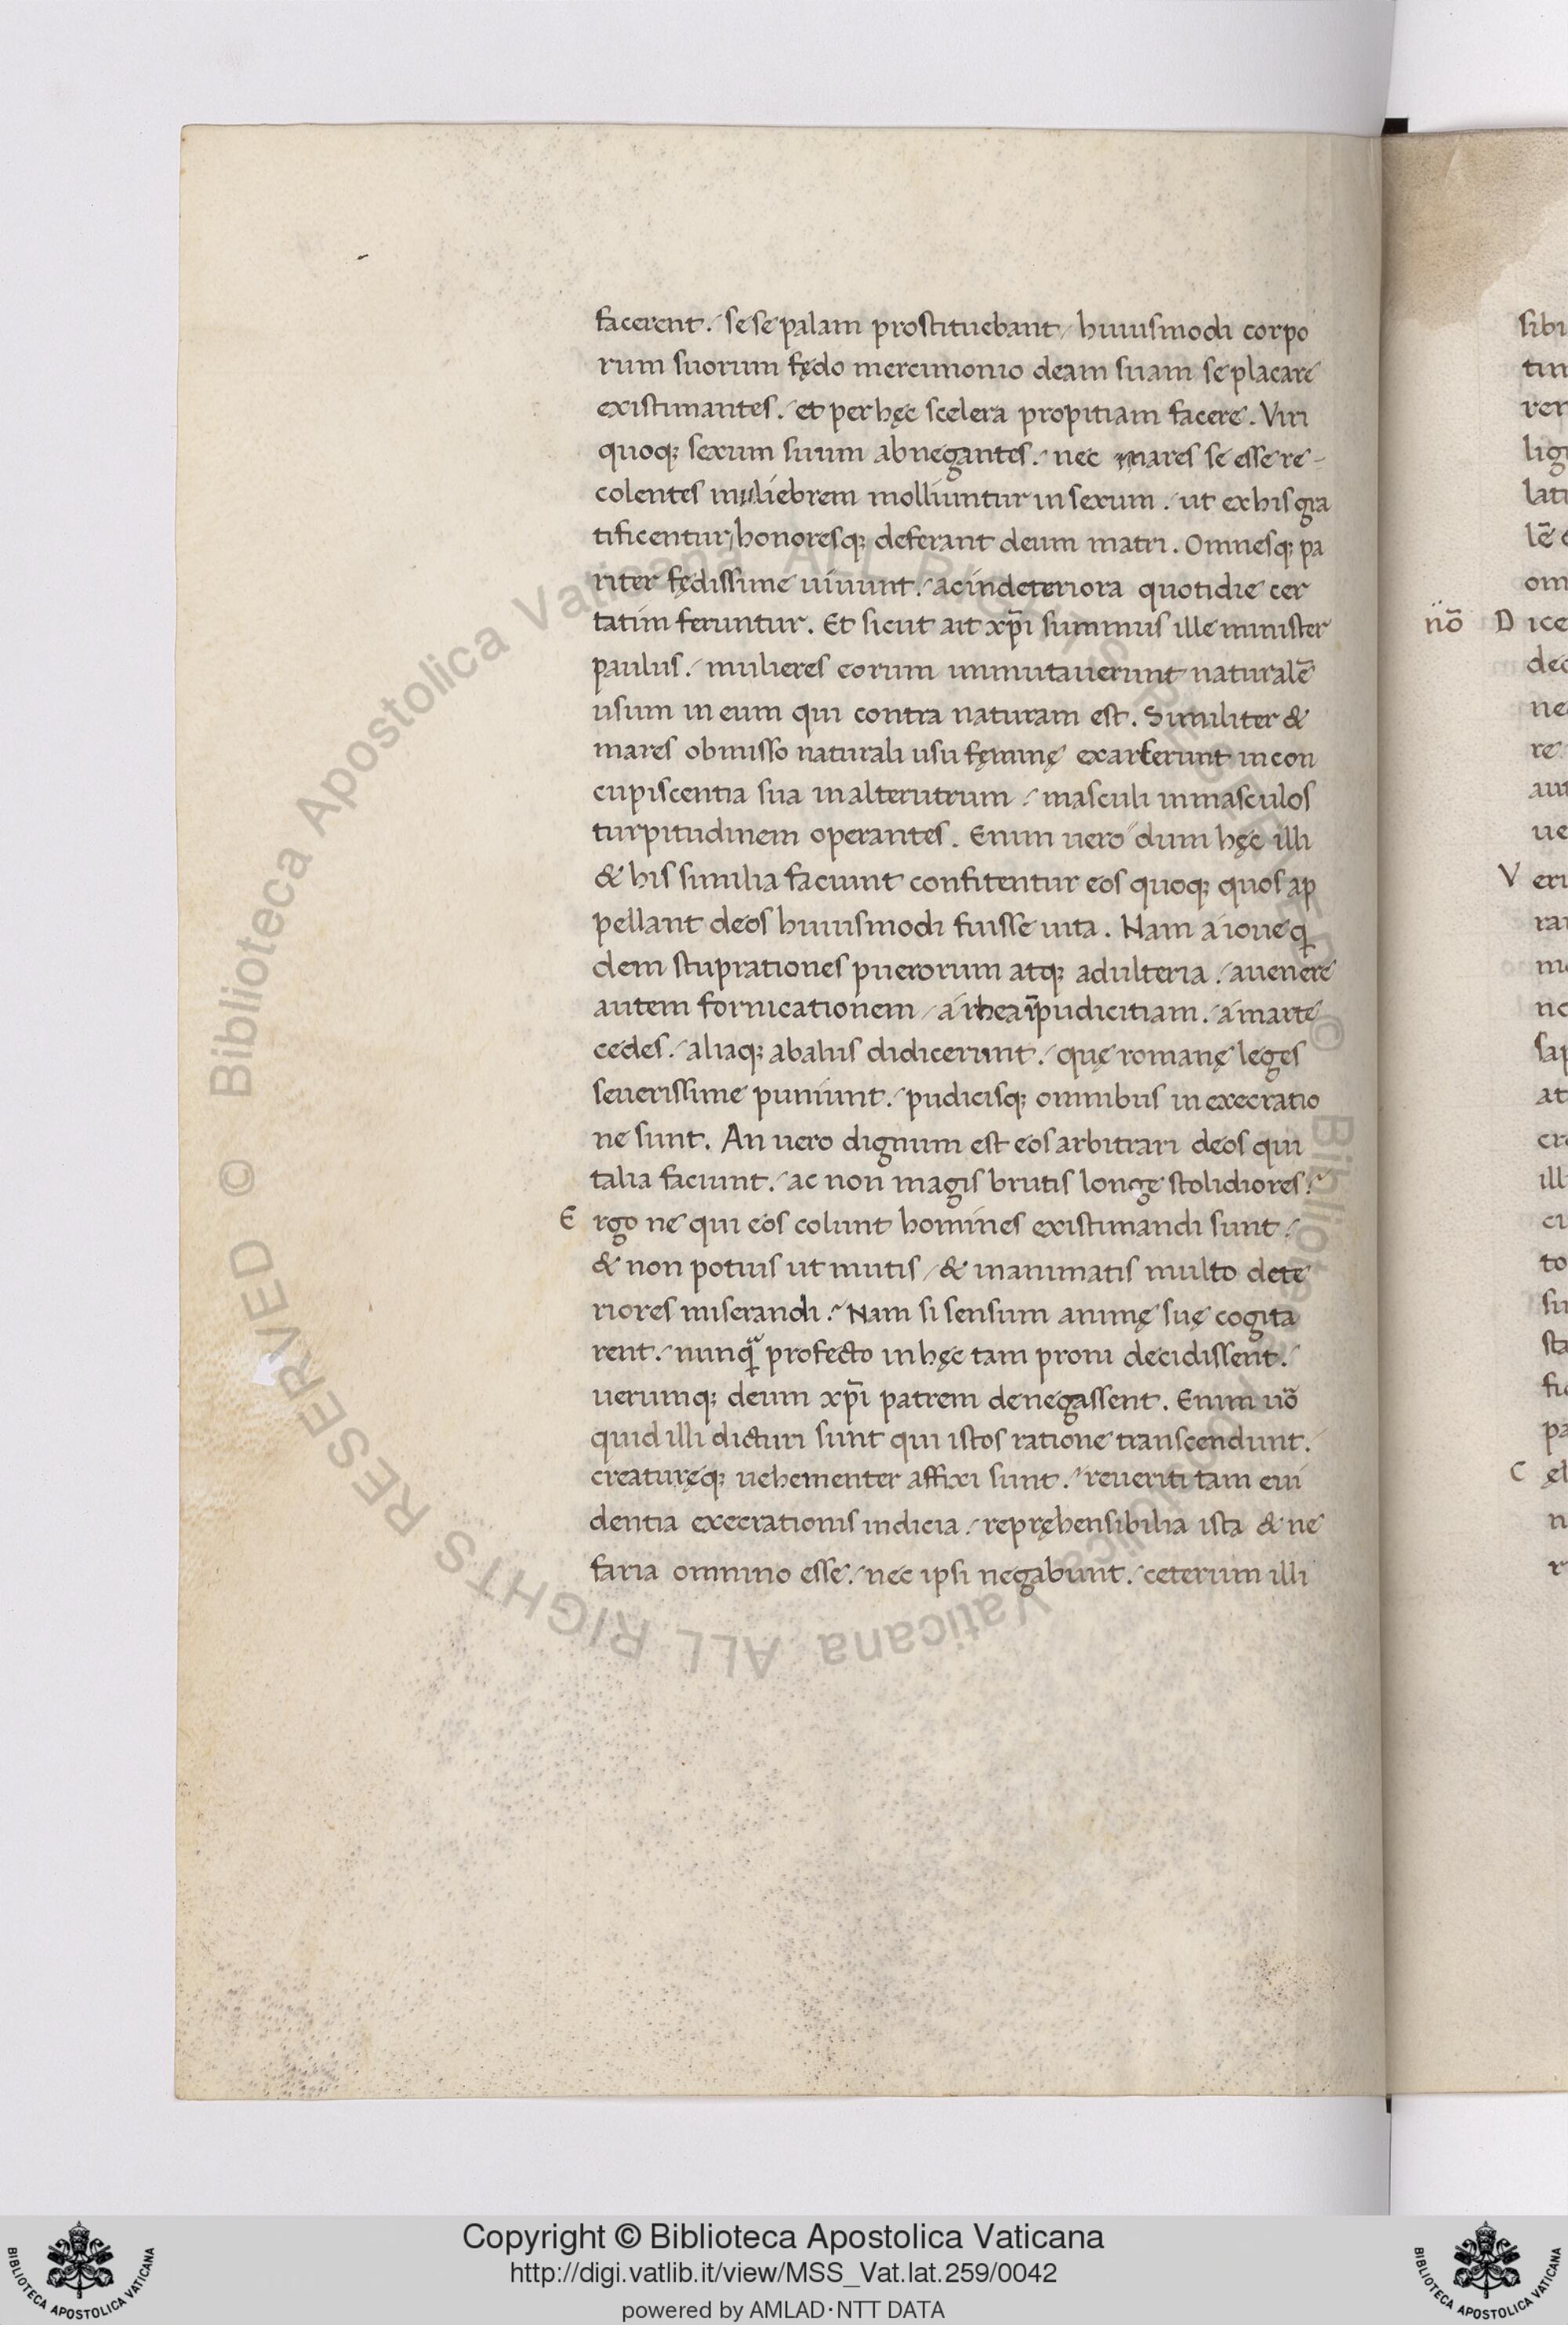 facerent. sese palam prostituebant, huiusmodi corpo
rum suorum fędo mercimonio deam suam se placare
existimantes. et per hęc scelera propitiam facere. Viri
quoq; sexum suum abnegantes. nec mares se esse re-
colentes muliebrem molliuntur in sexum. ut ex his gra
tificentur, honoresq; deferant deum matri. Omnesq; pa
riter fędissime uiuunt. ac in deteriora quotidie cer
tatim feruntur. Et sicut ait xp̄i summus ille minister
paulus. mulieres eorum immutauerunt naturalē
usum in eum qui contra naturam est. Similiter &
mares obmisso naturali usu fęminę exarserunt in con
cupiscentia sua in alterutrum. masculi in masculos
turpitudinem operantes. Enim uero dum hęc illi
& his similia faciunt confitentur eos quoq; quos ap
pellant deos huiusmodi fuisse uita. Nam a ioue q
dem stuprationes puerorum atq; adulteria. a uenere
autem fornicationem, a rhea īpudicitiam. a marte
cedes. aliaq; ab aliis didicerunt. quę romanę leges
seuerissime puniunt. pudicisq; omnibus in execratio
ne sunt. An uero dignum est eos arbitrari deos qui
talia faciunt. ac non magis brutis longe stolidiores?
Ergo ne qui eos colunt homines existimandi sunt.
& non potius ut mutis, & inanimatis multo dete
riores miserandi? Nam si sensum animę suę cogita
rent. nunq̄ profecto in hęc tam proni decidissent.
uerumq; deum xp̄i patrem denegassent. Enim uō
quid illi dicturi sunt qui istos ratione transcendunt.
creaturęq; uehementer affixi sunt. reueriti tam eui
dentia execrationis indicia. repręhensibilia ista & ne
faria omnino esse. nec ipsi negabunt. ceterum illi
nō
Copyright © Biblioteca Apostolica Vaticana
http://digi.vatlib.it/view/MSS_Vat.lat.259/0042
powered by AMLAD·NTT DATA
BIBLIOTECA APOSTOLICA VATICANA
BIBLIOTECA APOSTOLICA VATICANA
© Biblioteca Apostolica Vaticana ALL RIGHTS RESERVED
© Biblioteca Apostolica Vaticana ALL RIGHTS RESERVED